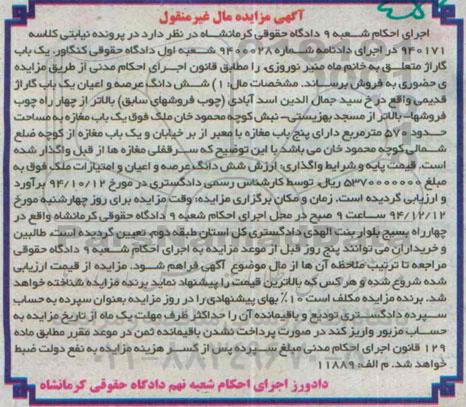 آگهی مزایده مال غیرمنقول
اجرای احکام شعبه ۹ دادگاه حقوقی کرمانشاه در نظر دارد در پرونده نیابتی کلاسه
۹۴۰۱۷۱ در اجرای دادنامه شماره ۹۴۰۰۰۲۸ شعبه اول دادگاه حقوقی کنگاور، یک باب
گاراژ متعلق به خانم ماه منیر نوروزی، را مطابق قانون اجرای احکام مدنی از طریق مزایده
ی حضوری به فروش برساند. مشخصات مال: ۱) شش دانگ عرصه و اعیان یک باب گاراژ
قدیمی واقع در خ سید جمال الدین اسد آبادی (چوب فروشهای سابق) بالاتر از چهار راه چوب
فروشها- بالاتر از مسجد بهزیستی- نبش کوچه محمود خان ملک فوق یک باب مغازه به مساحت
حدود ۵۷۰ مترمربع دارای پنج باب مغازه با معبر از بر خیابان و یک باب مغازه از کوچه ضلع
شمالی کوچه محمود خان می باشد با این توضیح که سرقفلی مغازه ها از قبل واگذار شده
است. قیمت پایه و شرایط واگذاری: ارزش شش دانگ عرصه و اعیان و امتیازات ملک فوق به
مبلغ ۵۳۷۰۰۰۰۰۰۰ ریال، توسط کارشناس رسمی دادگستری در مورخ ۹۴/۱۰/۱۲ برآورد
و ارزیابی گردیده است. زمان و مکان برگزاری مزایده: وقت مزایده برای روز چهارشنبه مورخ
۹۴/۱۲/۱۲ ساعت ۹ صبح در محل اجرای احکام شعبه ۹ دادگاه حقوقی کرمانشاه واقع در
چهارراه بسیج بلوار بنت الهدی دادگستری کل استان طبقه دوم، تعیین گردیده است. طالبین
و خریداران می توانند پنج روز قبل از موعد مزایده به اجرای احکام شعبه ۹ دادگاه حقوقی
مراجعه تا ترتیب ملاحظه آن ها از مال موضوع آگهی فراهم شود. مزایده از قیمت ارزیابی
شده شروع شده و هر کس که بالاترین قیمت را پیشنهاد نماید برنده مزایده شناخته خواهد
شد. برنده مزایده مکلف است ۱۰٪ بهای پیشنهادی را در روز مزایده بعنوان سپرده به حساب
سپرده دادگستری تودیع و باقیمانده آن را حداکثر ظرف مهلت یک ماه از تاریخ مزایده به
حساب مزبور واریز کند در صورت پرداخت نشدن باقیمانده ثمن در موعد مقرر مطابق ماده
۱۲۹ قانون اجرای احکام مدنی مبلغ سپرده پس از کسر هزینه مزایده به نفع دولت ضبط
خواهد شد. م الف: ۱۱۸۸۹
دادورز اجرای احکام شعبه نهم دادگاه حقوقی کرمانشاه